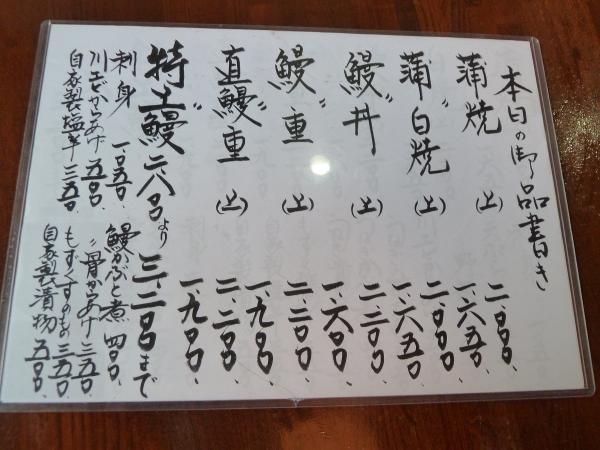 本日の御品書き
蒲焼 (上) 二、〇〇〇、
〃 一、六五〇、
蒲白焼 (上) 二、〇〇〇、
〃 一、六五〇、
鰻丼 (上) 二、〇〇〇、
〃 一、六〇〇、
鰻重 (上) 二、二〇〇、
〃 一、九〇〇、
直鰻重 (上) 二、二〇〇、
〃 一、九〇〇、
特上鰻 二、八〇〇より 三、二〇〇まで
刺身 一、〇五〇、
川エビからあげ 五〇〇、
自家製塩辛 三五〇、
鰻かぶと煮 四〇〇、
〃骨からあげ 三五〇、
もずくすのもの 三五〇、
自家製漬物 五〇〇、